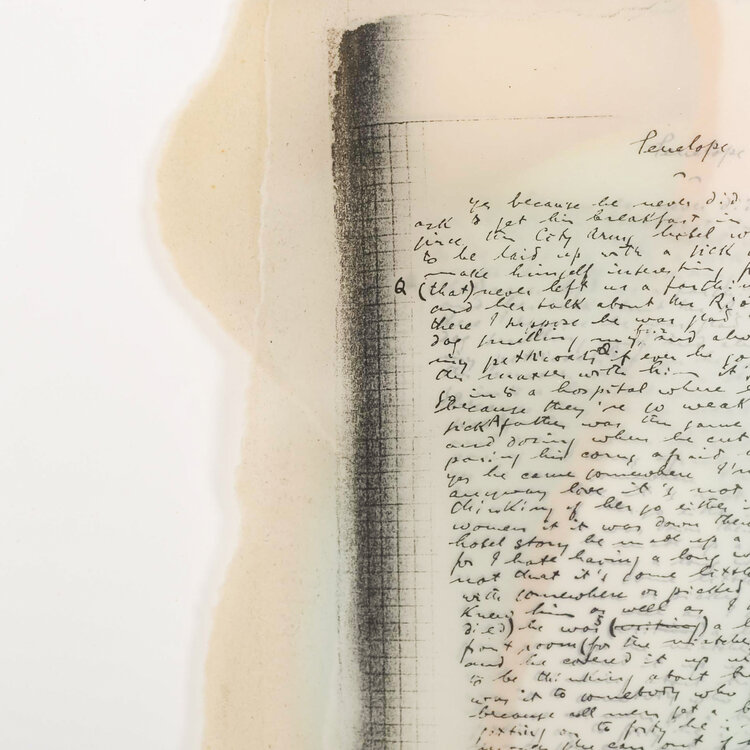 Penelope
yes because he never did
ask to get his breakfast in
since the City Arms hotel w
to be laid up with a sick
make himself interesting f
Q (that) never left us a farthin
and her talk about
there I suppose he was glad
dog smelling my fur and alw
my petticoats Q if ever he go
matter with him it's
go into a hospital where
because they're so weak
sick father was the same
and when he cut
paring his corns afraid
yes he came somewhere I'm
anyway love it's not
thinking of her so either
women it it was down ther
hotel story he made up a
for I hate having a long
not that it's some littl
with somewhere or picked
knew him as well as I
died) he was (writing) a l
front room (for the matches
and he covered it up
to be thinking about h
was it to somebody who
because all men get a b
getting on to forty he is